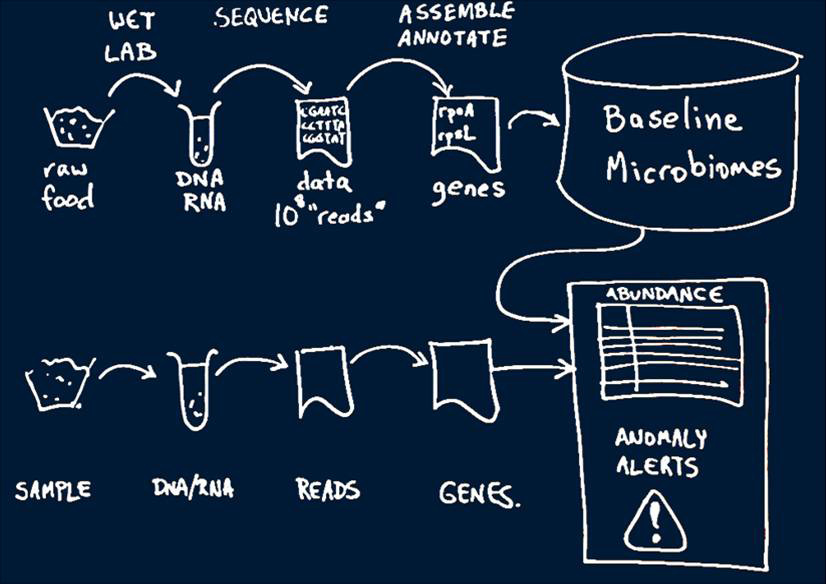 WET
LAB
SEQUENCE
ASSEMBLE
ANNOTATE
raw
food
DNA
RNA
CCTTTA
data
10⁸ "reads"
rpoA
rpsL
genes
Baseline
Microbiomes
ABUNDANCE
SAMPLE
DNA/RNA
READS
GENES.
ANOMALY
ALERTS
!